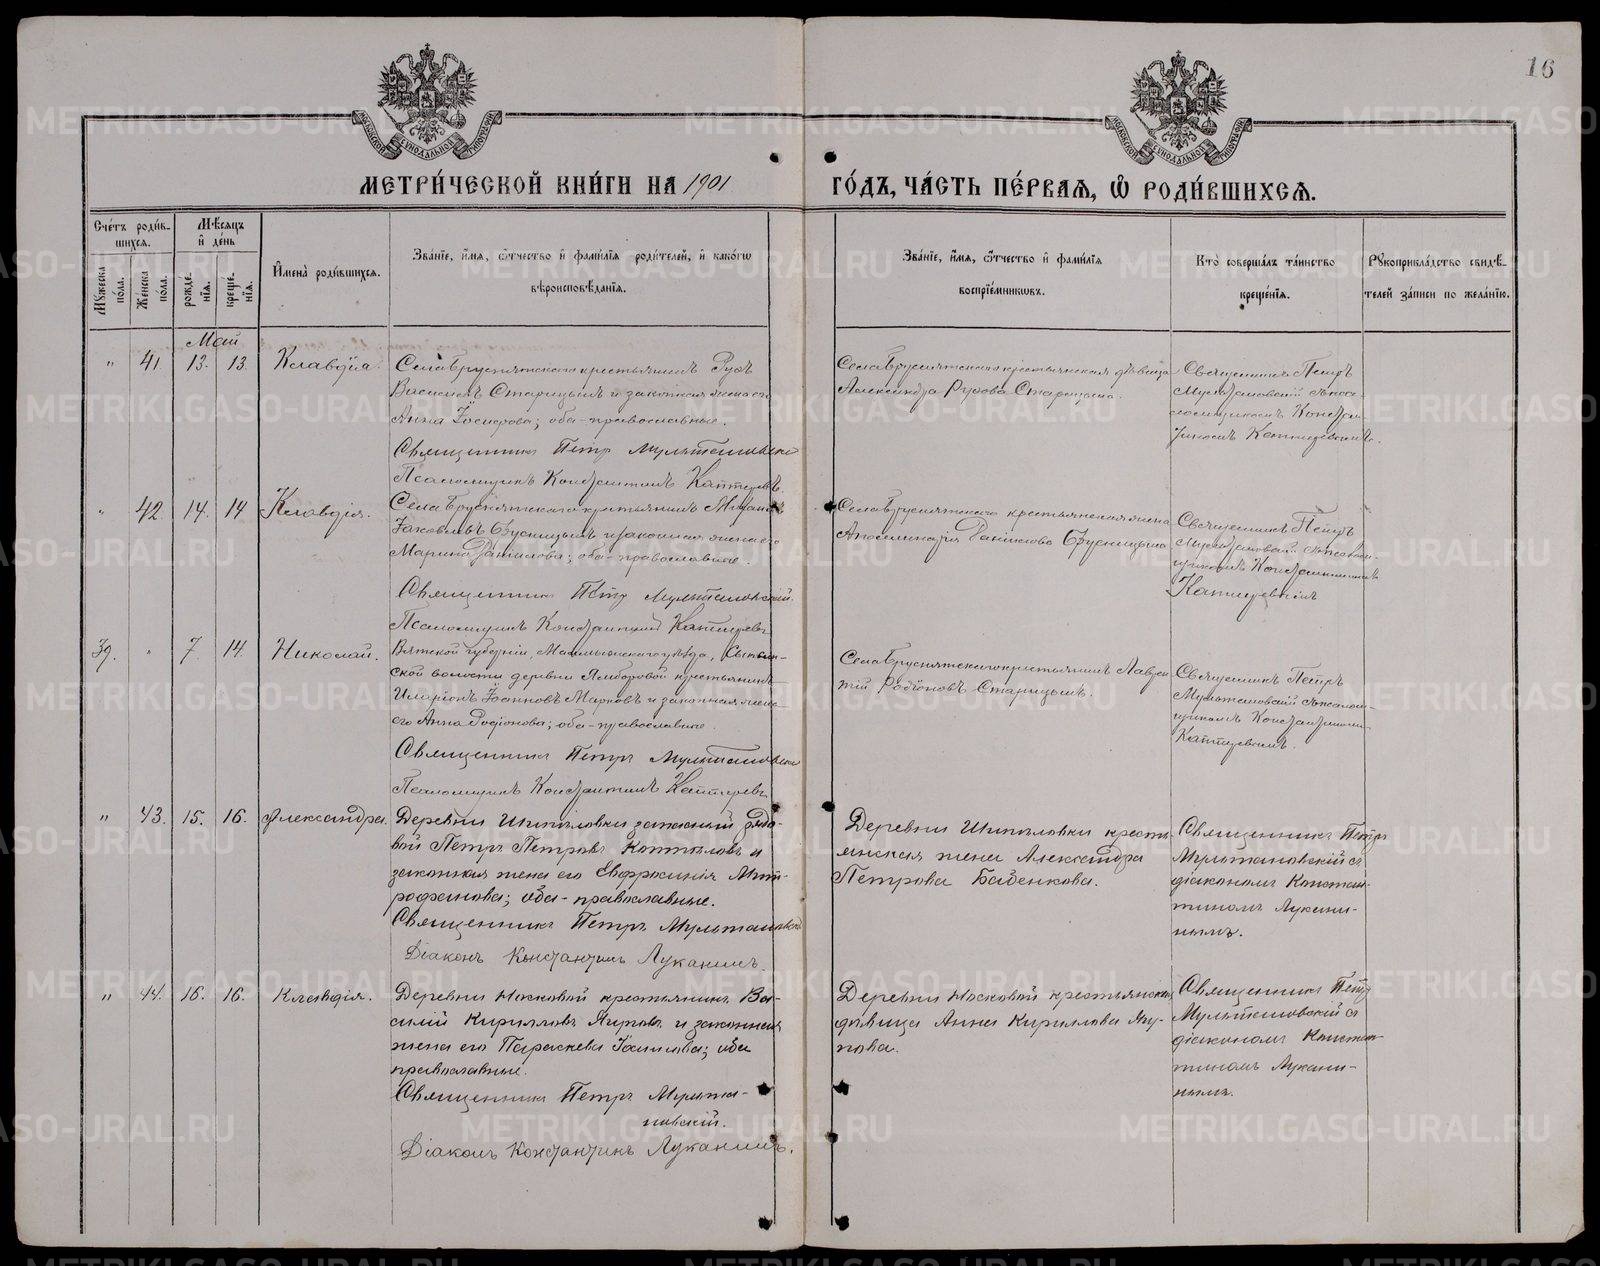 16
МЕТРИ́ЧЕСКОЙ КНИ́ГИ НА 1901 ГО́ДЪ, ЧА́СТЬ ПЕ́РВАѦ, Ѡ҆ РОДИ́ВШИХСѦ.
Сче́тъ роди́в-
шихсѧ.
Мѣ́сѧцъ
и҆ де́нь
И҆мена̀ роди́вшихсѧ.
Зва́нїе, и҆́мѧ, ѻ҆́тчество и҆ фамн́лїѧ роди́телей, и҆ како́гѡ
вѣроисповѣ́данїѧ.
Зва́нїе, и҆́мѧ, ѻ҆́тчество и҆ фами́лїѧ
воспрїе́мникѡвъ.
Кто̀ соверша́лъ та́инство
креще́нїѧ.
Рꙋкоприкла́дство свидѣ́-
телей за́писи по жела́нїю.
Мꙋ́жеска
по́ла.
Же́нска
по́ла.
рожде́-
нїѧ.
креще́-
нїѧ.
Май
" 41 13. 13. Клавдія.
Села Бруснятскаго крестьянинъ Руфъ
Васильевъ Старицынъ и законная жена его
Анна ; оба - православные.
Священникъ Петръ Мультановскій
Псаломщикъ Константинъ Каптеревъ
Села Бруснятскаго крестьянская дѣвица
Александра Руфова Старицына.
Священникъ Петръ
Мультановскій съ пса-
ломщикомъ Констан-
тиномъ Каптеревымъ.
" 42. 14. 14 Клавдія.
Села Бруснятскаго крестьянинъ
Іаковлевъ Брусницынъ и законная жена его
Марина Данилова; оба - православные.
Священникъ Петръ Мультановскій.
Псаломщикъ Константинъ Каптеревъ
Села Бруснятскаго крестьянская жена
Аполлинарія Брусницына
Священникъ Петръ
Мультановскій съ псалом-
щикомъ Константиномъ
Каптеревымъ
39. " 7. 14. Николай.
Вятской губерніи, Малмыжскаго уѣзда,
ской волости деревни крестьянинъ
Иларіонъ Іоанновъ Марковъ и законная жена
его Анна Родіонова; оба - православные.
Священникъ Петръ Мультановскій
Псаломщикъ Константинъ Каптеревъ
Села Бруснятскаго крестьянинъ Лаврен-
тій Родіоновъ Старицынъ.
Священникъ Петръ
Мультановскій съ псалом-
щикомъ Константиномъ
Каптеревымъ.
" 43. 15. 16. Александра.
Деревни Шипѣловки запасный рядо-
вой Петръ Петровъ и
законная жена его Евфросинія Мит-
рофанова; оба - православные.
Священникъ Петръ Мультановскій
Діаконъ Константинъ Луканинъ.
Деревни Шипѣловки кресть-
янская жена Александра
Петрова Бабенкова.
Священникъ Петръ
Мультановскій съ
діакономъ Констан-
тиномъ Лукани-
нымъ.
" 44. 16. 16. Клавдія.
Деревни Носковой крестьянинъ Ва-
силій Кирилловъ и законная
жена его Параскева ; оба
православные.
Священникъ Петръ Мульта-
новскій.
Діаконъ Константинъ Луканинъ.
Деревни Носковой крестьянская
дѣвица Анна Кириллова
Священникъ Петръ
Мультановскій съ
діакономъ Констан-
тиномъ Лукани-
нымъ.
METRIKI.GASO-URAL.RU